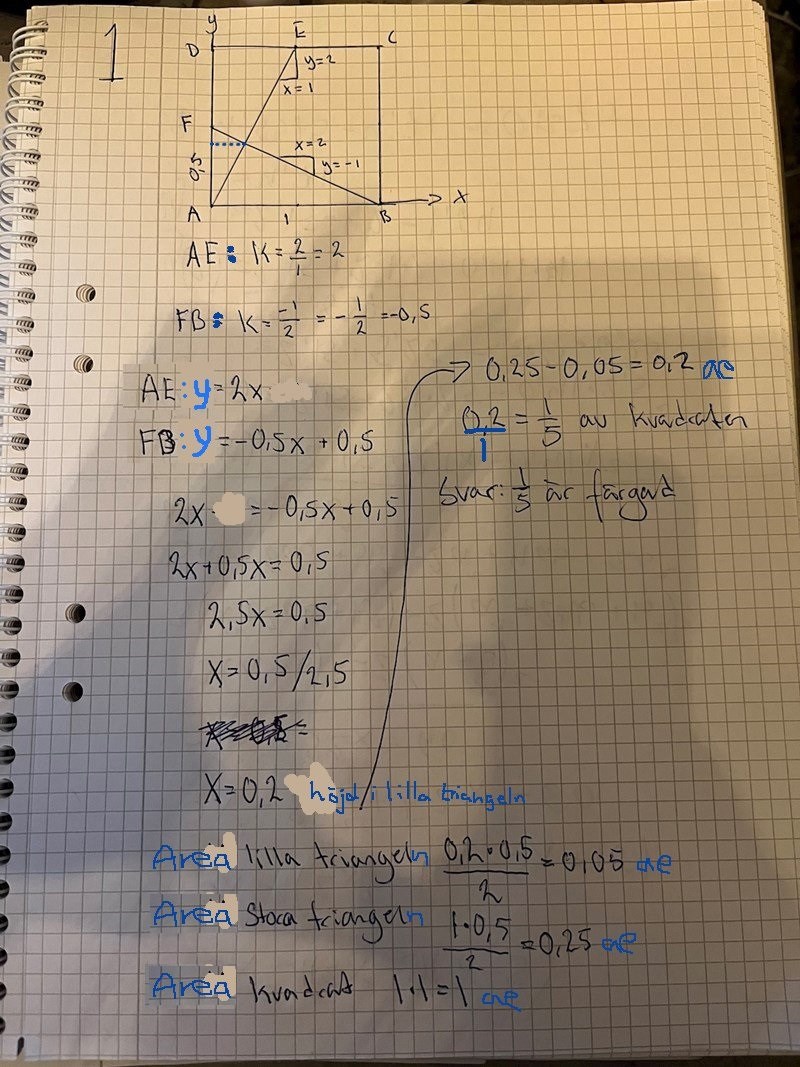 1
y
D E C
y=2
x=1
F
x=2
y=-1
0,5
A 1 B X
AE: K=2/1=2
FB: K=-1/2=-1/2=-0,5
AE: y=2x
FB: y=-0,5x+0,5
2x=-0,5x+0,5
2x+0,5x=0,5
2,5x=0,5
X=0,5/2,5
X=0,2 höjd i lilla triangeln
Area lilla triangeln 0,2·0,5/2=0,05 ae
Area Stora triangeln 1·0,5/2=0,25 ae
Area kvadrat 1·1=1 ae
→ 0,25-0,05=0,2 ae
0,2/1=1/5 av kvadraten
Svar: 1/5 är färgard